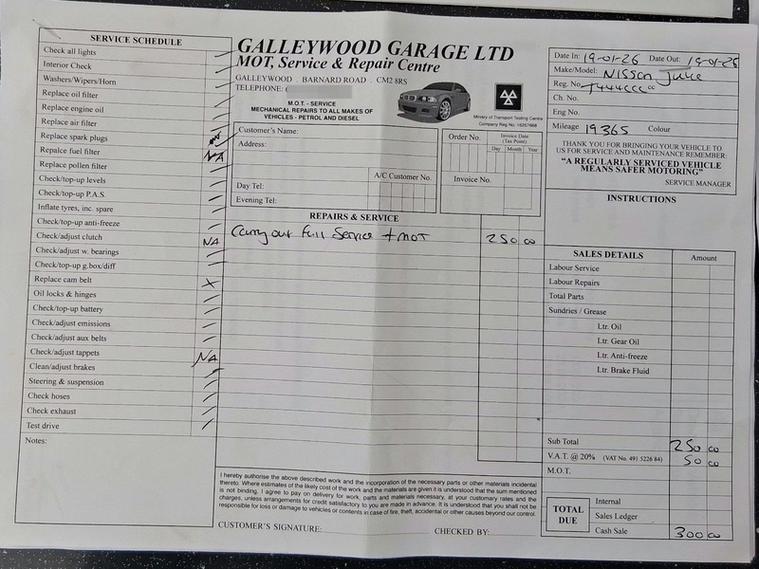 SERVICE SCHEDULE
Check all lights
Interior Check
Washers/Wipers/Horn
Replace oil filter
Replace engine oil
Replace air filter
Replace spark plugs
Repalce fuel filter NA
Replace pollen filter
Check/top-up levels
Check/top-up P.A.S.
Inflate tyres, inc. spare
Check/top-up anti-freeze
Check/adjust clutch NA
Check/adjust w. bearings
Check/top-up g.box/diff
Replace cam belt X
Oil locks & hinges
Check/top-up battery
Check/adjust emissions
Check/adjust aux belts
Check/adjust tappets NA
Clean/adjust brakes
Steering & suspension
Check hoses
Check exhaust
Test drive
Notes:
GALLEYWOOD GARAGE LTD
MOT, Service & Repair Centre
GALLEYWOOD . BARNARD ROAD . CM2 8RS
TELEPHONE: (
M.O.T. - SERVICE
MECHANICAL REPAIRS TO ALL MAKES OF
VEHICLES - PETROL AND DIESEL
Ministry of Transport Testing Centre
Customer's Name:
Address:
A/C Customer No.
Day Tel:
Evening Tel:
Order No.
Invoice Date
(Tax Point)
Day Month Year
Invoice No.
REPAIRS & SERVICE
Carry out Full Service + MOT 250 00
I hereby authorise the above described work and the incorporation of the necessary parts or other materials incidental
thereto. Where estimates of the likely cost of the work and the materials are given it is understood that the sum mentioned
is not binding. I agree to pay on delivery for work, parts and materials necessary, at your customary rates and the
charges, unless arrangements for credit satisfactory to you are made in advance. It is understood that you shall not be
responsible for loss or damage to vehicles or contents in case of fire, theft, accidental or other causes beyond our control.
CUSTOMER'S SIGNATURE: CHECKED BY:
Date In: 19-01-26 Date Out: 19-01-26
Make/Model: Nissan Juke
Reg. No.
Ch. No.
Eng No.
Mileage 19365 Colour
THANK YOU FOR BRINGING YOUR VEHICLE TO
US FOR SERVICE AND MAINTENANCE REMEMBER:
"A REGULARLY SERVICED VEHICLE
MEANS SAFER MOTORING"
SERVICE MANAGER
INSTRUCTIONS
SALES DETAILS Amount
Labour Service
Labour Repairs
Total Parts
Sundries / Grease
Ltr. Oil
Ltr. Gear Oil
Ltr. Anti-freeze
Ltr. Brake Fluid
Sub Total 250 00
V.A.T. @ 20% (VAT No. 491 5226 84) 50 00
M.O.T.
TOTAL
DUE
Internal
Sales Ledger
Cash Sale 300 00